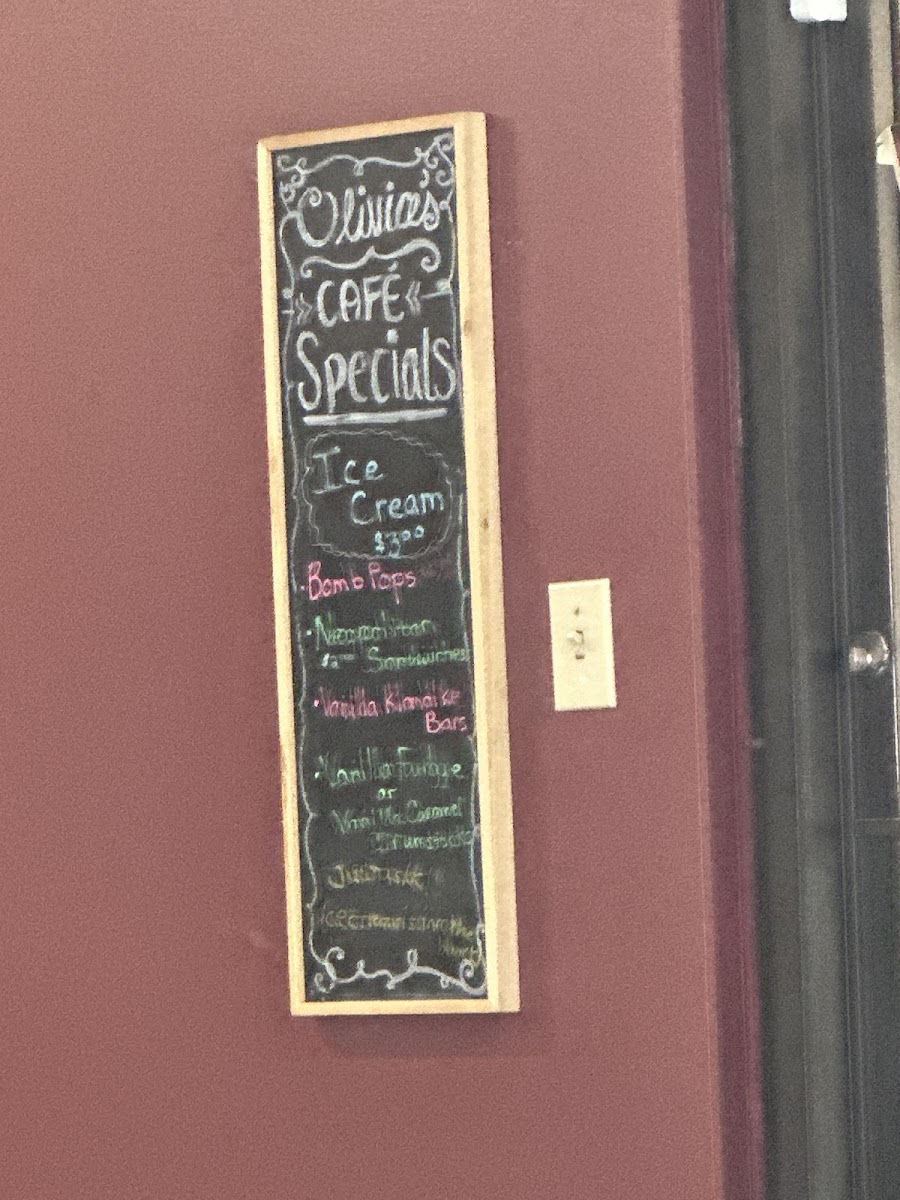 Olivia's
CAFÉ
Specials
Ice
Cream
$3⁰⁰
• Bomb Pops
• Neopolitan
Sandwiches
• Vanilla Klondike
Bars
• Vanilla Fudge
or
Vanilla Caramel
Drumsticks
Just ask
Ice Cream is in the